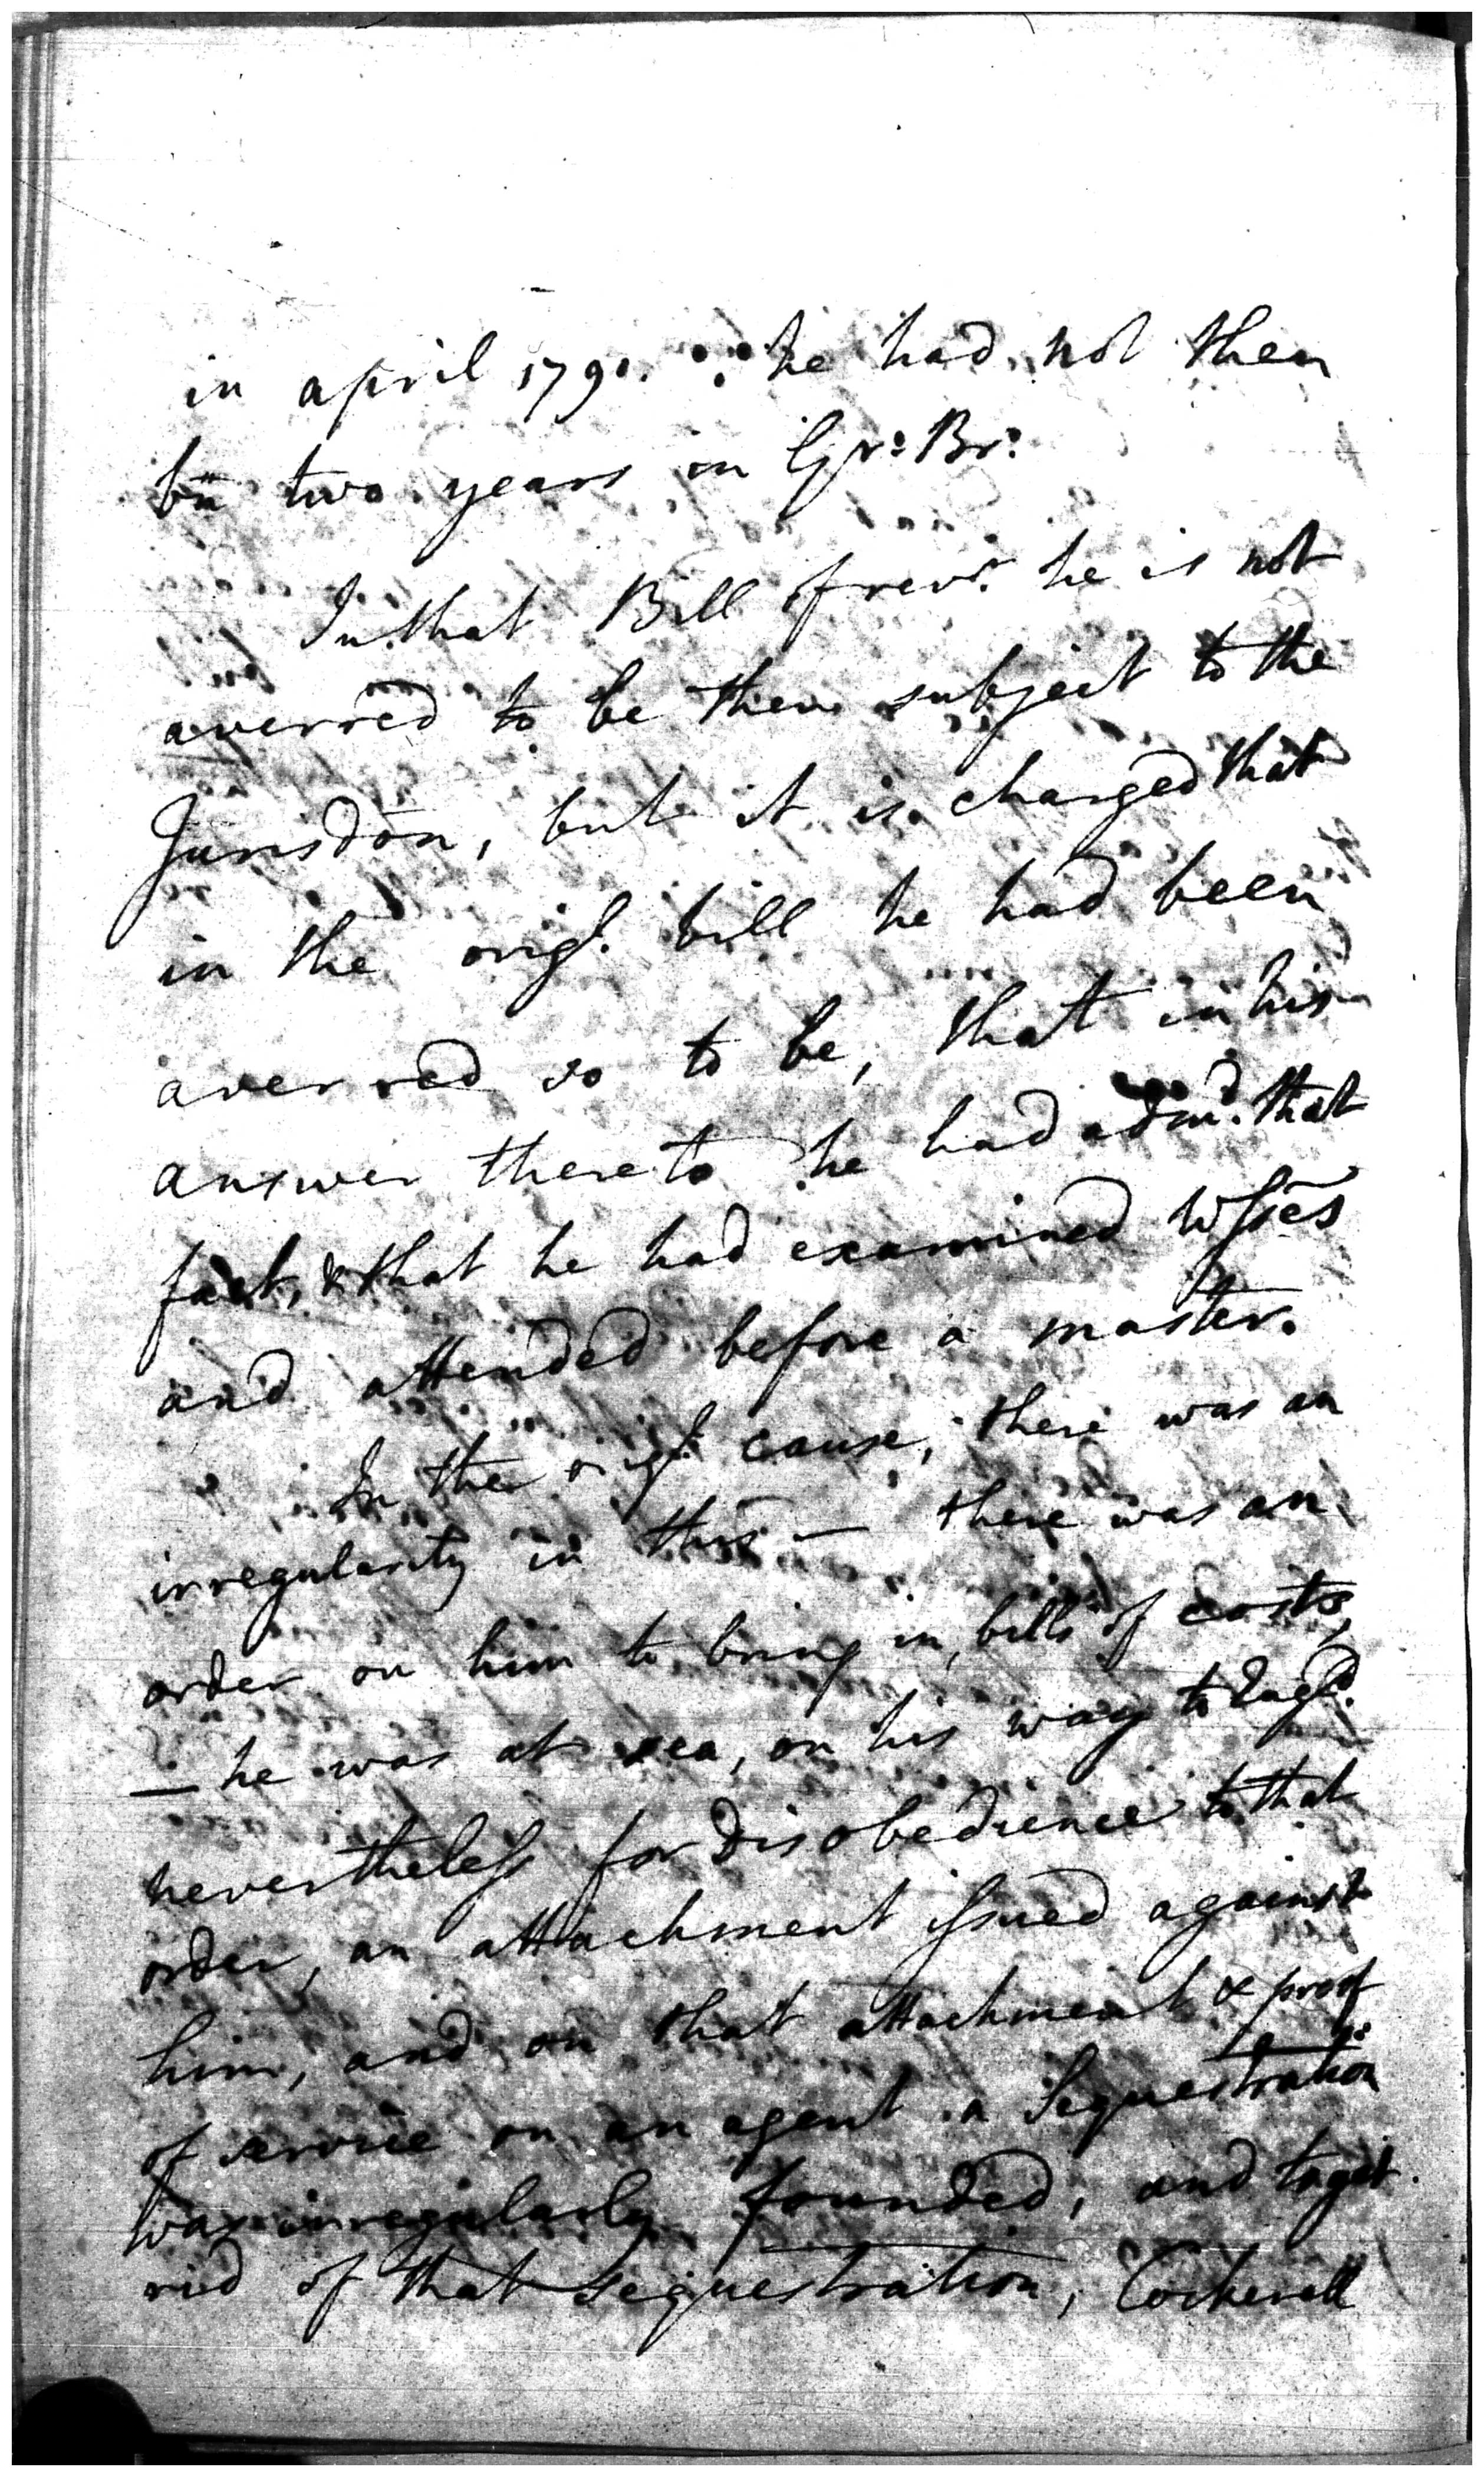 in april 1790. ∴ he had not then
bn̄ two years in Gr: Br:
In that Bill of revr. he is not
averred to be then subject to the
Jurisdōn, but it is charged that
in the origl. bill he had been
averred so to be, that in his
answer thereto he had admd. that
fact, & that he had examined Wssēs
and attended before a master.
In the origl. cause, there was an
irregularity in this — there was an
order on him to bring in, bills of costs,
— he was at sea, on his way to Engd.
nevertheless for disobedience to that
order, an attachment issued against
him, and on that attachment & proof
of service on an agent a Sequestration
was irregularly founded, and to get
rid of that sequestration, Cockerell